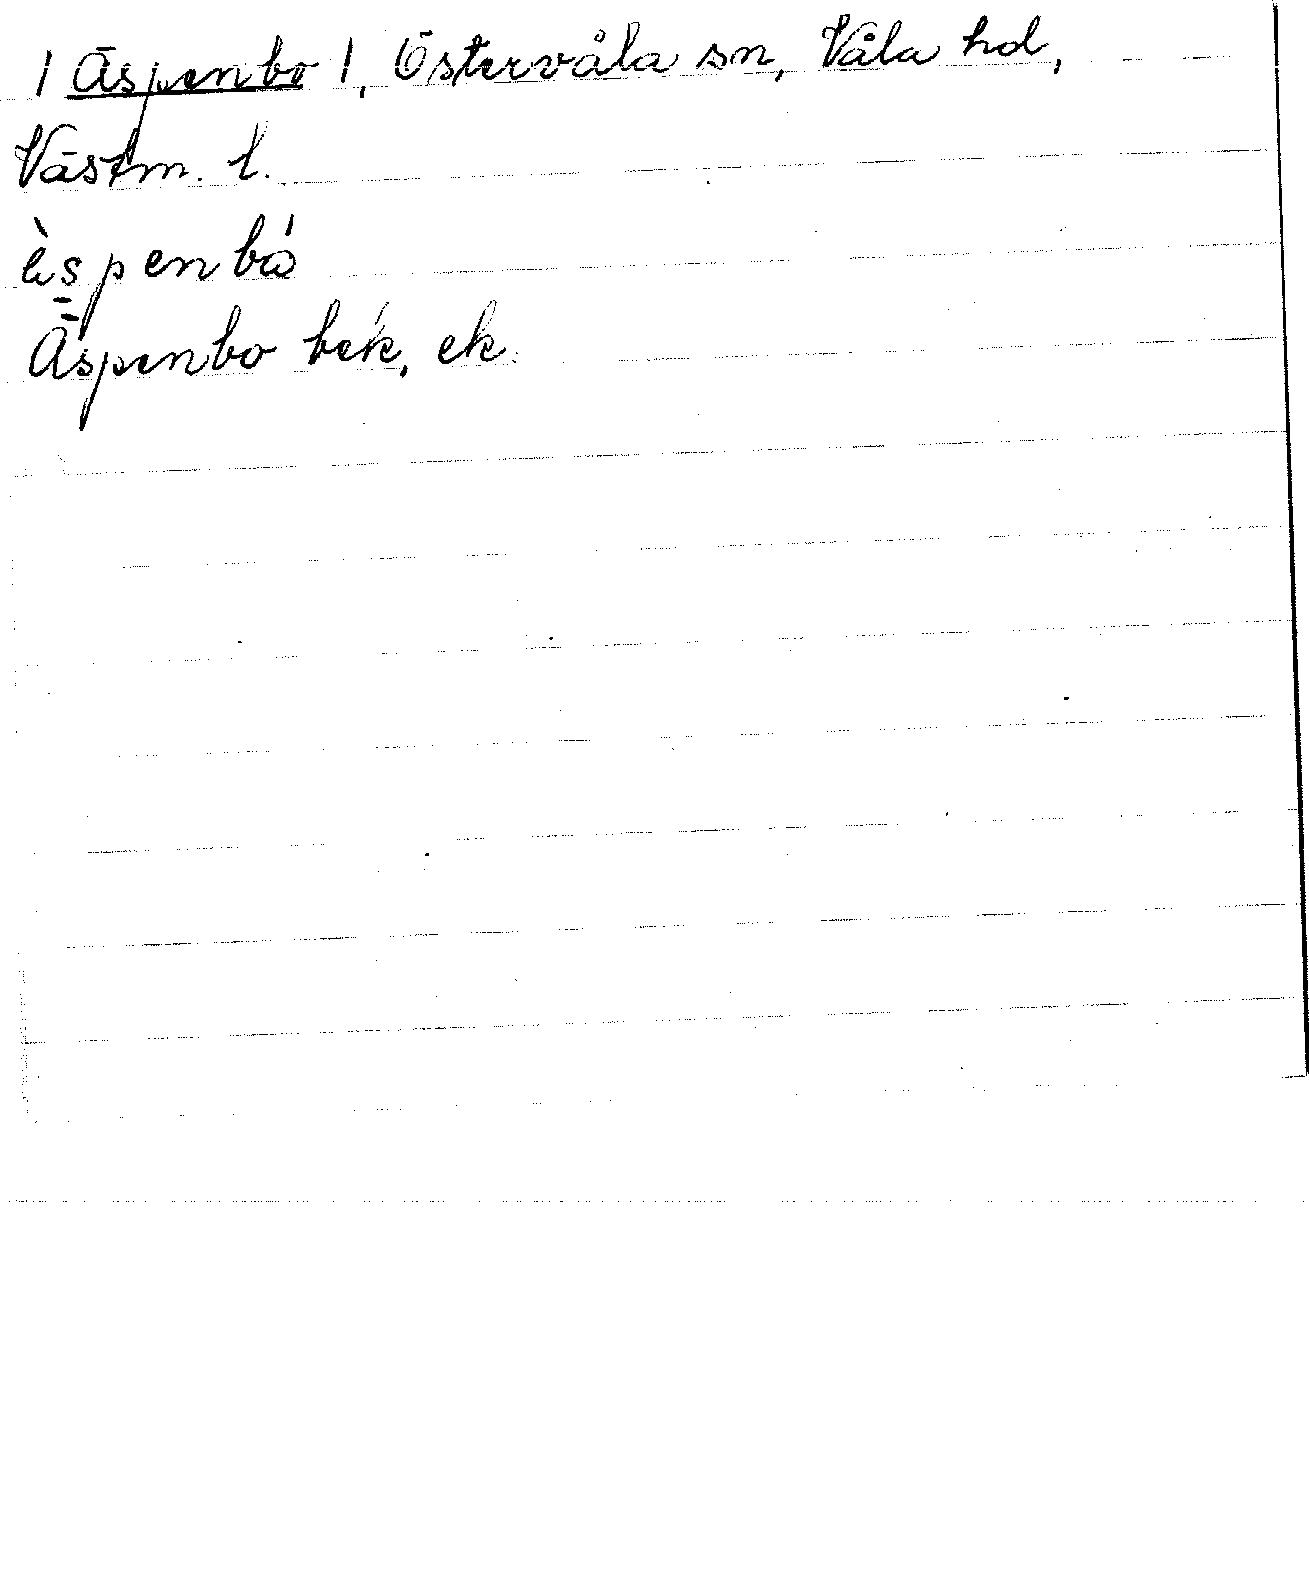 / Äspenbo /, Östervåla sn, Våla hd,
Västm. l.
èspenbó
Äspenbo bek, ek.